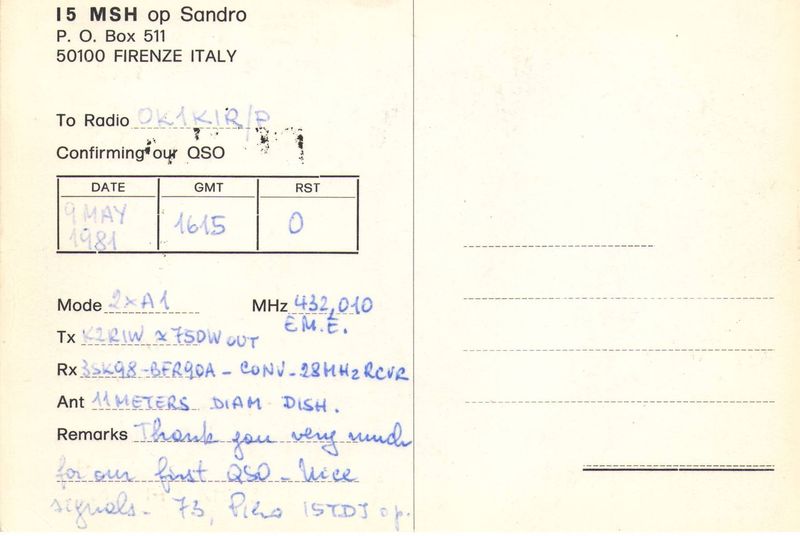 I5 MSH op Sandro
P. O. Box 511
50100 FIRENZE ITALY
To Radio OK1KIR/P
Confirming our QSO
DATE GMT RST
9 MAY 1615 O
1981
Mode 2xA1 MHz 432,010
E.M.E.
Tx K2RIW 750W OUT
Rx 3SK98-BFR90A-CONV-28MHz RCVR
Ant 11METERS DIAM DISH.
Remarks Thank you very much
for our first QSO - Nice
signals - 73, Piero I5TDJ op.